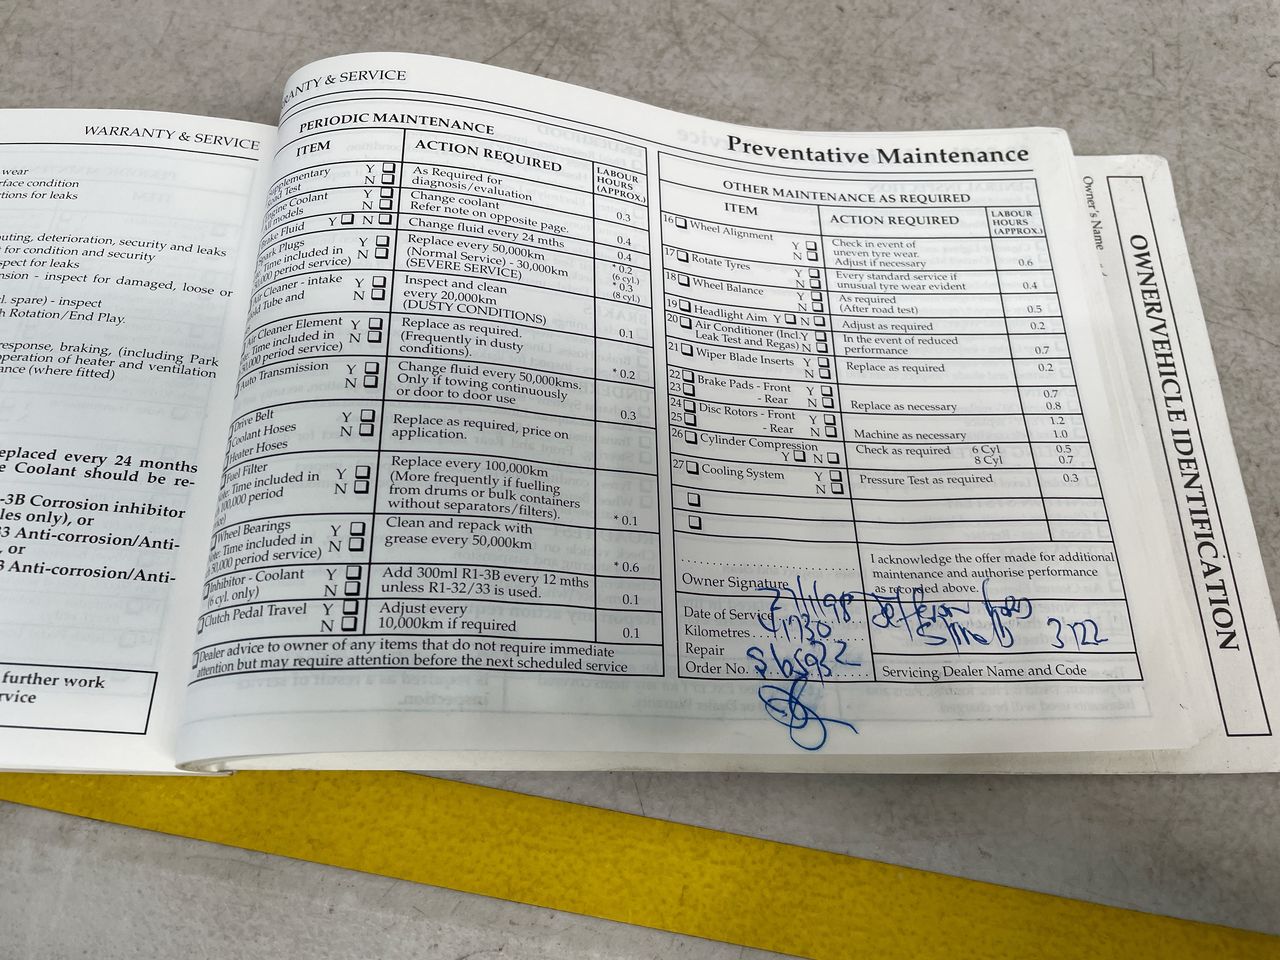 WARRANTY & SERVICE
wear
rface condition
tions for leaks
uting, deterioration, security and leaks
t for condition and security
spect for leaks
nsion - inspect for damaged, loose or
cl. spare) - inspect
h Rotation/End Play.
response, braking, (including Park
operation of heater and ventilation
ance (where fitted)
eplaced every 24 months
e Coolant should be re-
-3B Corrosion inhibitor
les only), or
33 Anti-corrosion/Anti-
, or
3 Anti-corrosion/Anti-
further work
rvice
RANTY & SERVICE
PERIODIC MAINTENANCE
ITEM ACTION REQUIRED LABOUR HOURS (APPROX.)
upplementary Y
Road Test N
As Required for
diagnosis/evaluation 0.3
Engine Coolant Y
All models N
Change coolant
Refer note on opposite page. 0.4
Brake Fluid Y N Change fluid every 24 mths 0.4
park Plugs Y
Time included in N
50,000 period service)
Replace every 50,000km
(Normal Service) - 30,000km
(SEVERE SERVICE)
* 0.2
(6 cyl.)
* 0.3
(8 cyl.)
Air Cleaner - intake Y
old Tube and N
Inspect and clean
every 20,000km
(DUSTY CONDITIONS) 0.1
Air Cleaner Element Y
te: Time included in N
50,000 period service)
Replace as required.
(Frequently in dusty
conditions). * 0.2
Auto Transmission Y
N
Change fluid every 50,000kms.
Only if towing continuously
or door to door use 0.3
Drive Belt Y
Coolant Hoses N
Heater Hoses
Replace as required, price on
application.
Fuel Filter Y
ote: Time included in N
100,000 period
Replace every 100,000km
(More frequently if fuelling
from drums or bulk containers
without separators/filters). * 0.1
Wheel Bearings Y
ote: Time included in N
50,000 period service)
Clean and repack with
grease every 50,000km * 0.6
Inhibitor - Coolant Y
(6 cyl. only) N
Add 300ml R1-3B every 12 mths
unless R1-32/33 is used. 0.1
Clutch Pedal Travel Y
N
Adjust every
10,000km if required 0.1
Dealer advice to owner of any items that do not require immediate
attention but may require attention before the next scheduled service
Preventative Maintenance
OTHER MAINTENANCE AS REQUIRED
ITEM ACTION REQUIRED LABOUR HOURS (APPROX.)
16 Wheel Alignment Y
N
Check in event of
uneven tyre wear.
Adjust if necessary 0.6
17 Rotate Tyres Y
N
Every standard service if
unusual tyre wear evident 0.4
18 Wheel Balance Y
N
As required
(After road test) 0.5
19 Headlight Aim Y N Adjust as required 0.2
20 Air Conditioner (Incl. Y
Leak Test and Regas) N
In the event of reduced
performance 0.7
21 Wiper Blade Inserts Y
N
Replace as required 0.2
22 Brake Pads - Front Y 0.7
23 - Rear N Replace as necessary 0.8
24 Disc Rotors - Front Y 1.2
25 - Rear N Machine as necessary 1.0
26 Cylinder Compression
Y N
Check as required 6 Cyl 0.5
8 Cyl 0.7
27 Cooling System Y
N
Pressure Test as required 0.3
Owner Signature
I acknowledge the offer made for additional
maintenance and authorise performance
as recorded above.
Date of Service 27/1/98
Kilometres 41730
Repair
Order No.
3122
Servicing Dealer Name and Code
Owner's Name
OWNER/VEHICLE IDENTIFICATION